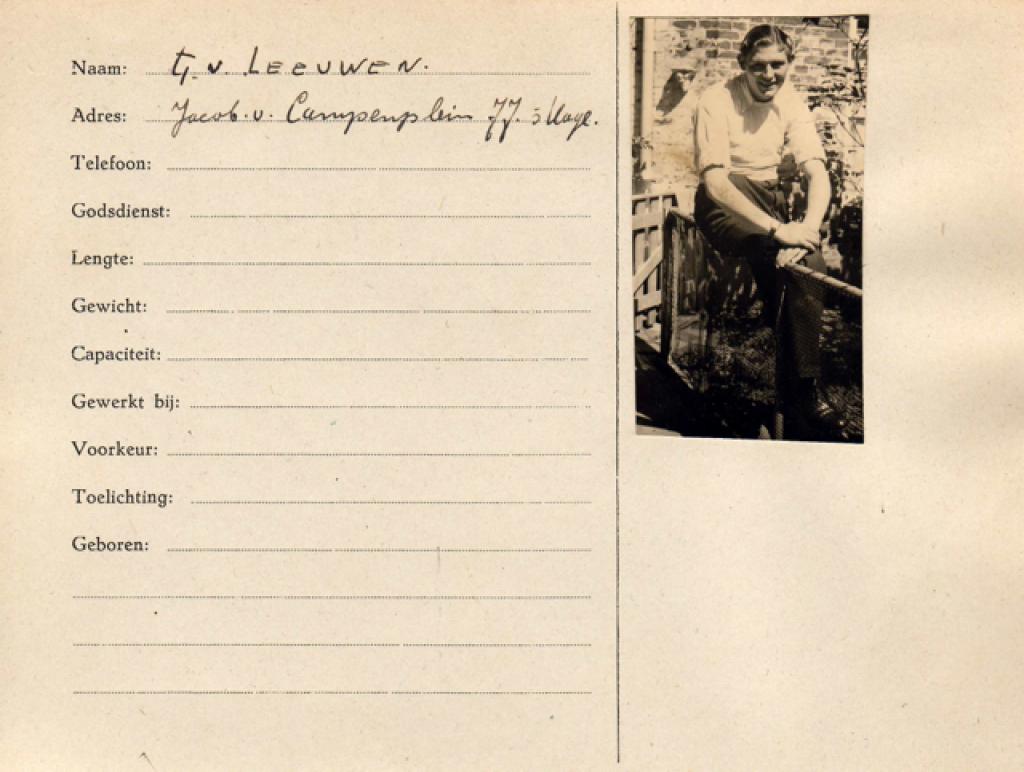 Naam: G. v. LEEUWEN.
Adres: Jacob. v. Campenplein 77. 's Hage.
Telefoon:
Godsdienst:
Lengte:
Gewicht:
Capaciteit:
Gewerkt bij:
Voorkeur:
Toelichting:
Geboren: